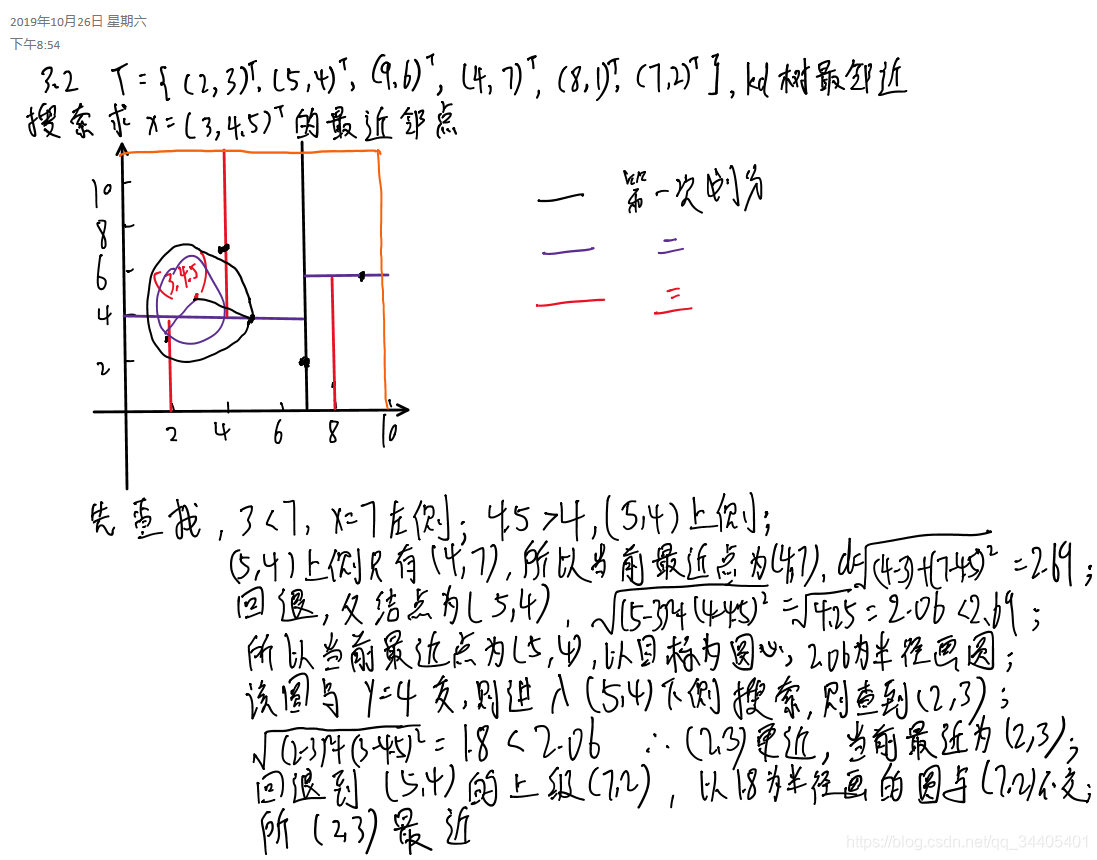 2019年10月26日 星期六
下午8:54
3.2 T={(2,3)ᵀ,(5,4)ᵀ,(9,6)ᵀ,(4,7)ᵀ,(8,1)ᵀ,(7,2)ᵀ},kd树最邻近
搜索求x=(3,4.5)ᵀ的最近邻点
10
8
6
4
2
(3,4.5)
2 4 6 8 10
第一次划分
二
三
先查找,3<7,x=7左侧;4.5>4,(5,4)上侧;
(5,4)上侧只有(4,7),所以当前最近点为(4,7),d=√(4-3)+(7-4.5)² =2.69;
回退,父结点为(5,4),√(5-3)²+(4-4.5)² =√4.25=2.06<2.69;
所以当前最近点为(5,4),以目标为圆心,2.06为半径画圆;
该圆与y=4交,则进入(5,4)下侧搜索,则查到(2,3);
√(2-3)²+(3-4.5)² =1.8<2.06 ∴(2,3)更近,当前最近为(2,3);
回退到(5,4)的上级(7,2),以1.8为半径画的圆与(7,2)不交;
所(2,3)最近
https://blog.csdn.net/qq_34405401